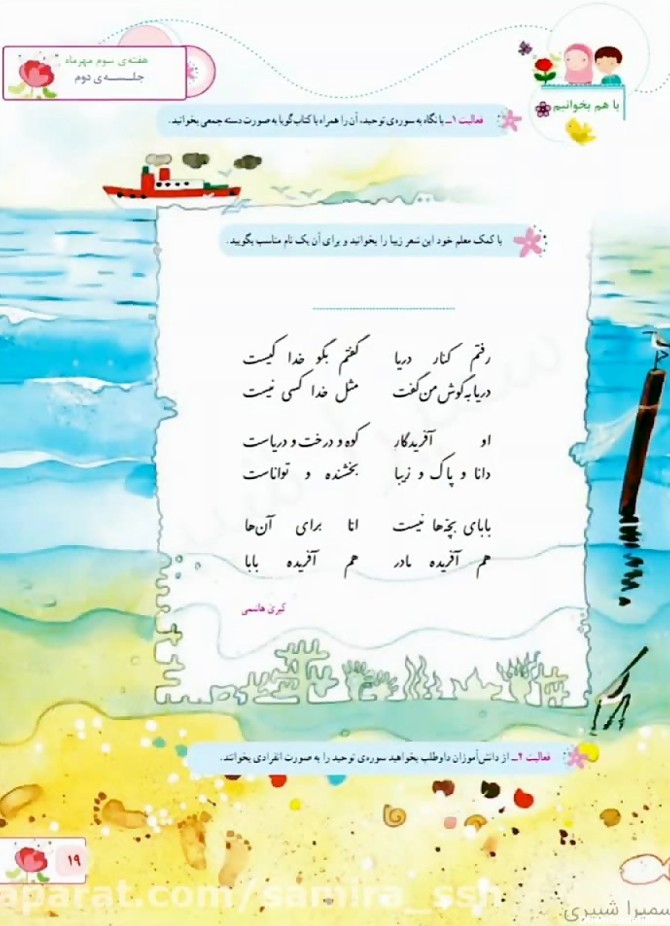 هفته‌ی سوم مهرماه
جلســه‌ی دوم
با هم بخوانیم
فعالیت ۱ــ با نگاه به سوره‌ی توحید، آن را همراه با کتاب گویا به صورت دسته جمعی بخوانید.
با کمک معلم خود این شعر زیبا را بخوانید و برای آن یک نام مناسب بگویید.
رفتم کنار دریا گفتم بگو خدا کیست
دریا به گوش من گفت مثل خدا کسی نیست
او آفریدگار کوه و درخت و دریاست
دانا و پاک و زیبا بخشنده و تواناست
بابای بچّه‌ها نیست امّا برای آن‌ها
هم آفریده مادر هم آفریده بابا
کبری هاشمی
فعالیت ۲ــ از دانش‌آموزان داوطلب بخواهید سوره‌ی توحید را به صورت انفرادی بخوانند.
۱۹
aparat.com/samira_ssh
سمیرا شبیری